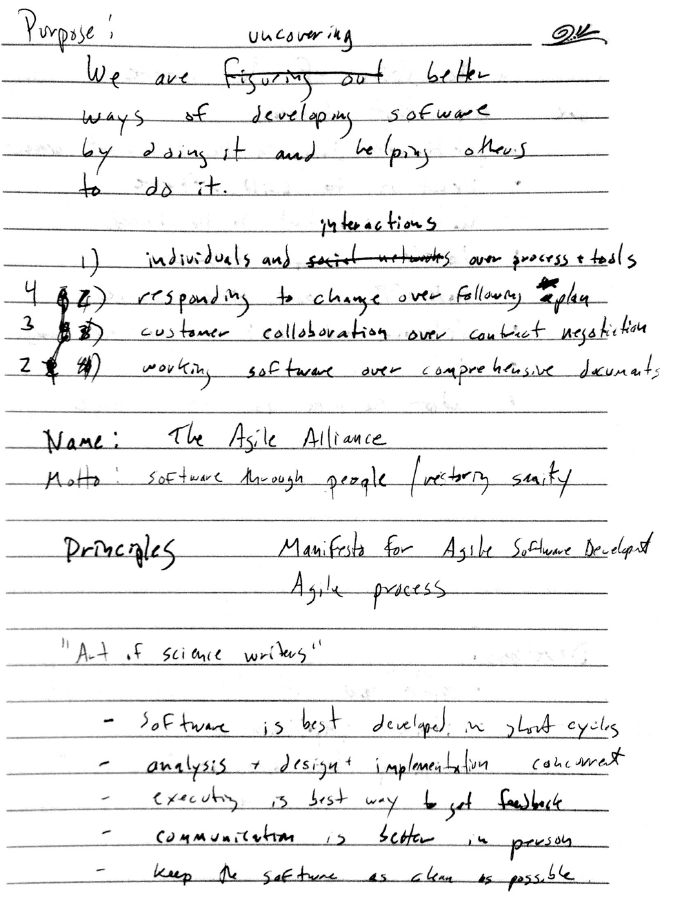 Purpose:
uncovering
We are figuring out better
ways of developing software
by doing it and helping others
to do it.
interactions
1) individuals and social networks over process + tools
4 2) responding to change over following a plan
3 3) customer collaboration over contract negotiction
2 4) working software over comprehensive documents
Name: The Agile Alliance
Motto: software through people / restoring sanity
Principles Manifesto for Agile Software Developmt
Agile process
"Art of science writers"
- software is best developed in short cycles
- analysis + design + implementation concurrent
- executing is best way to get feedback
- communication is better in person
- keep the software as clean as possible.